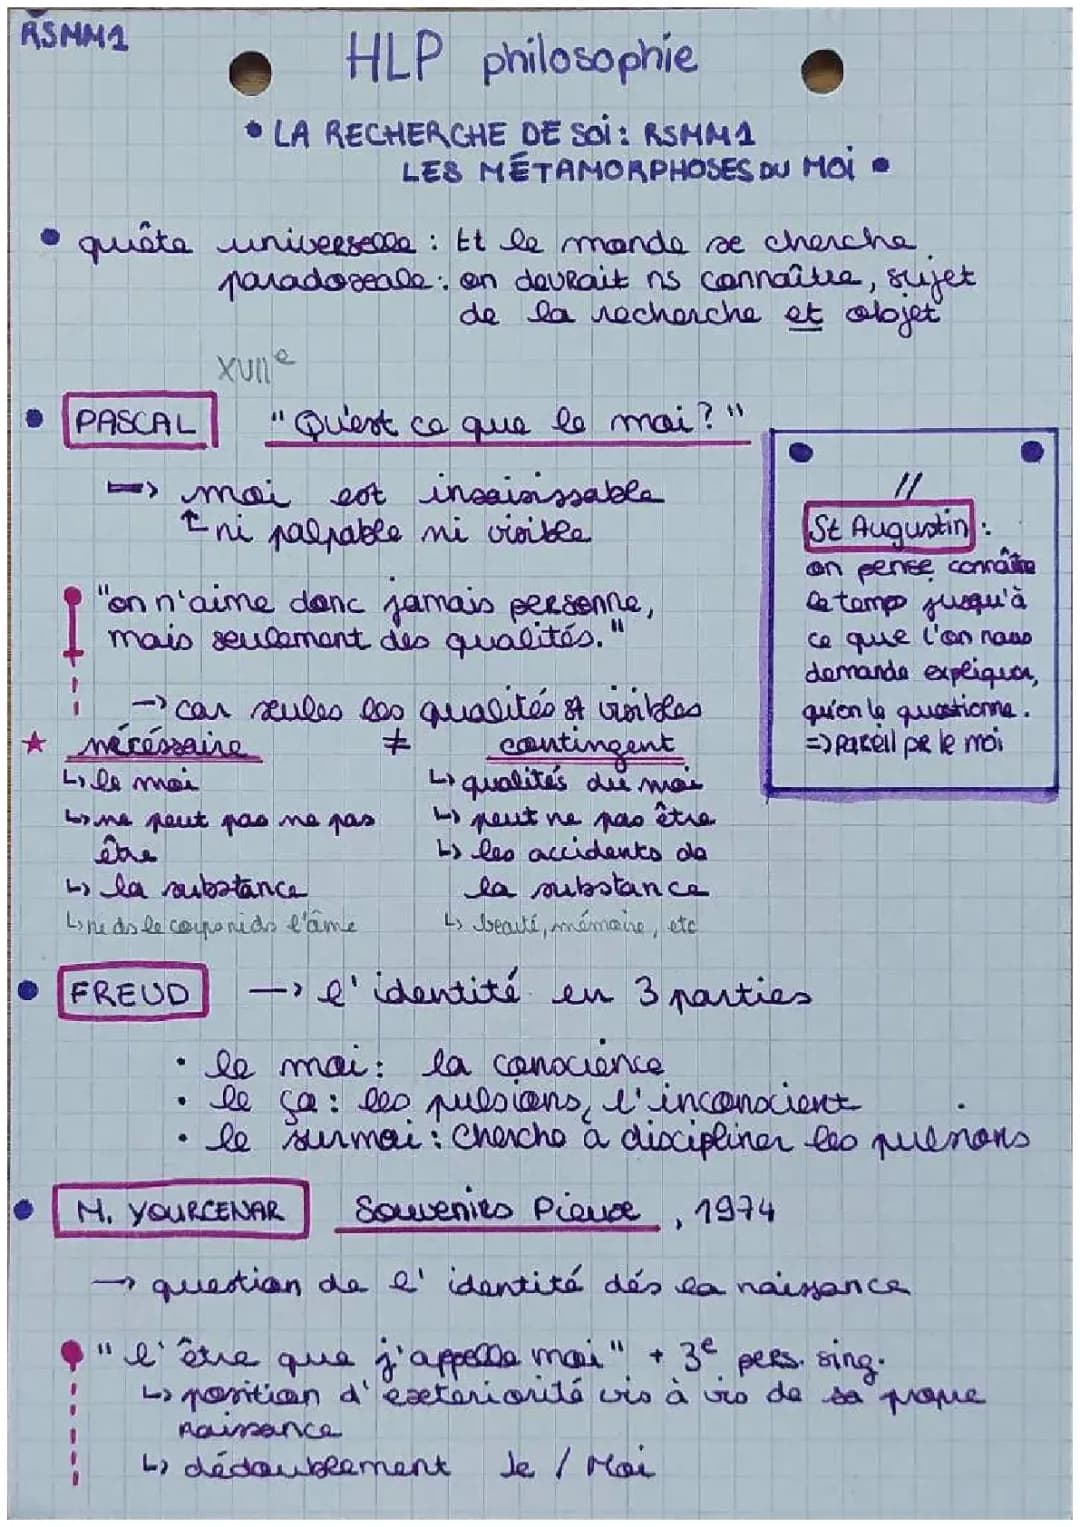 RSMM1
HLP philosophie
• LA RECHERCHE DE SOI : RSMM1
LES MÉTAMORPHOSES DU MOI •
• quête universelle : Tt le monde se cherche
paradoxale : on devrait ns connaître, sujet
de la recherche et objet
XVIIe
• PASCAL "Qu'est ce que le moi ? "
=> moi est insaisissable
↑ ni palpable ni visible
"on n'aime donc jamais personne,
mais seulement des qualités."
-> car seules les qualités st visibles
★ nécéssaire ≠ contingent
↳ le moi
↳ ne peut pas ne pas
être
↳ la substance
↳ ni ds le corps ni ds l'âme
↳ qualités du moi
↳ peut ne pas être
↳ les accidents de
la substance
↳ beauté, mémoire, etc
//
St Augustin :
on pense connaître
le temps jusqu'à
ce que l'on nous
demande expliquer,
qu'on le questionne.
=> pareil pr le moi
• FREUD -> l'identité en 3 parties
• le moi : la conscience
• le ça : les pulsions, l'inconscient
• le surmoi : cherche à discipliner les pulsions
• M. YOURCENAR Souvenirs Pieux, 1974
-> question de l'identité dés la naissance
"l'être que j'appelle moi" + 3e pers. sing.
↳ position d'exteriorité vis à vis de sa propre
naissance
↳ dédoublement Je / Moi